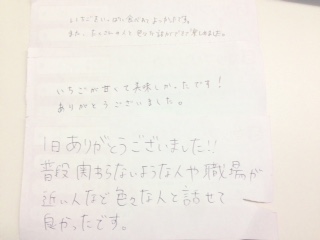 いちごさいっぱい食べれてよかったです。
また、たくさんの人と色々な話ができて楽しめました。
いちごが甘くて美味しかったです！
ありがとうございました。
1日ありがとうございました!!
普段関わらないような人や職場が
近い人など色々な人と話せて
良かったです。